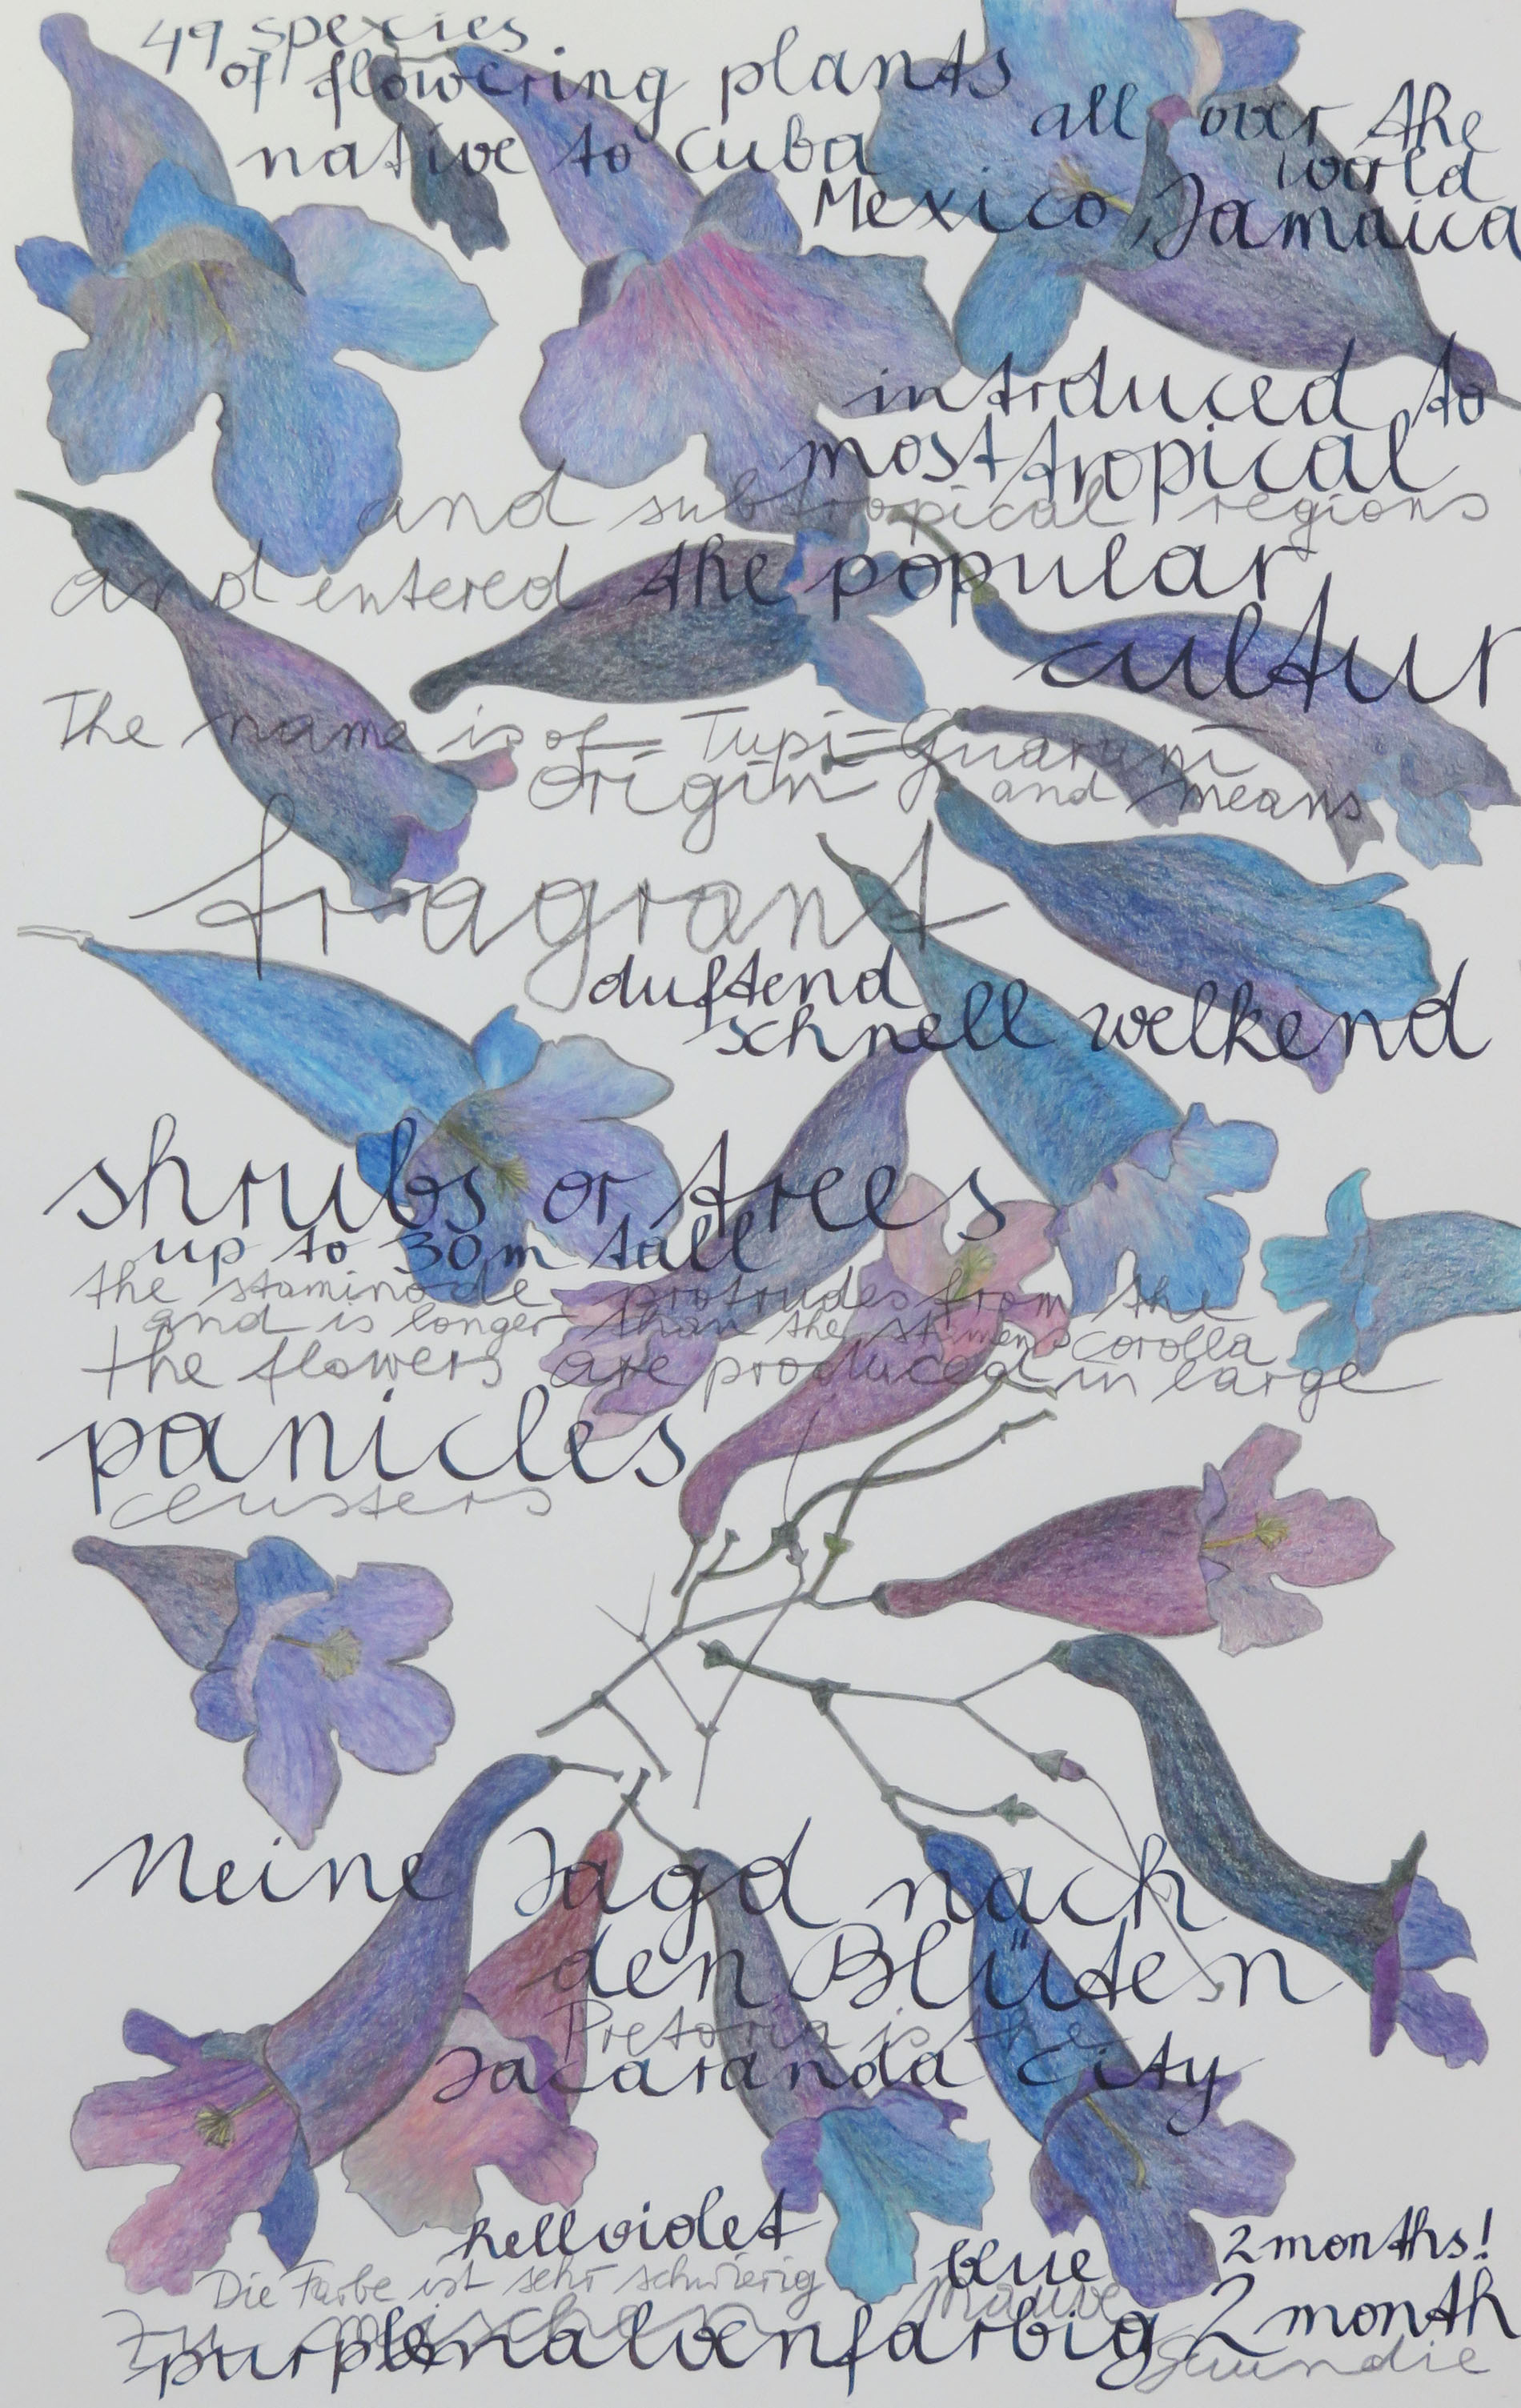 49 species
of flowering plants
native to Cuba
all over the
world
Mexico, Jamaica
introduced to
most tropical
and subtropical regions
and entered the popular
cultur
The name is of = Tupi=Guarani
origin and means
fragrant
duftend
schnell welkend
shrubs or trees
up to 30m tall
the staminode protrudes from the
and is longer than the stamens corolla
the flowers are produced in large
panicles
clusters
Meine Jagd nach
den Blüten
Pretoria is the
Jacaranda City
hellviolet
blue
2 months!
Die Farbe ist sehr schwierig
Mauve
2 month
zu mischen
purple malvenfarbig